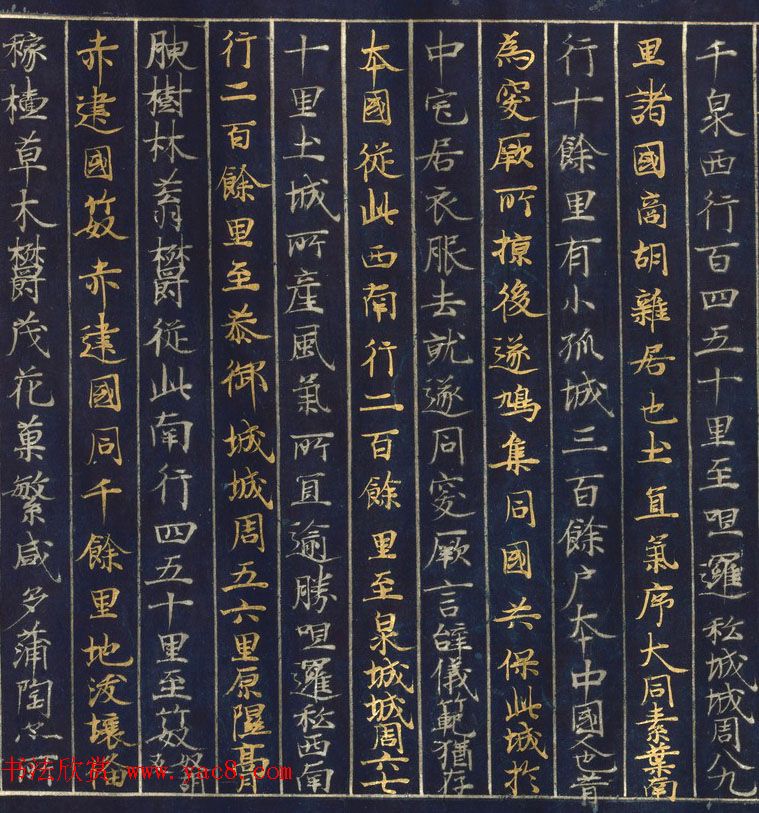 千泉西行百四五十里至呾邏私城城周八九
里諸國商胡雜居也土宜氣序大同素葉南
行十餘里有小孤城三百餘户本中國人也昔
為突厥所掠後遂鳩集同國共保此城於
中宅居衣服去就遂同突厥言辭儀範猶存
本國從此西南行二百餘里至泉城城周六七
十里土城所產風氣所宜逾勝呾邏私西南
行二百餘里至恭御城城周五六里原隰膏
腴樹林蓊欝從此南行四五十里至笯
赤建國笯赤建國周千餘里地沃壤備
稼穡草木欝茂花菓繁盛多蒲陶
书法欣赏 www.yac8.com